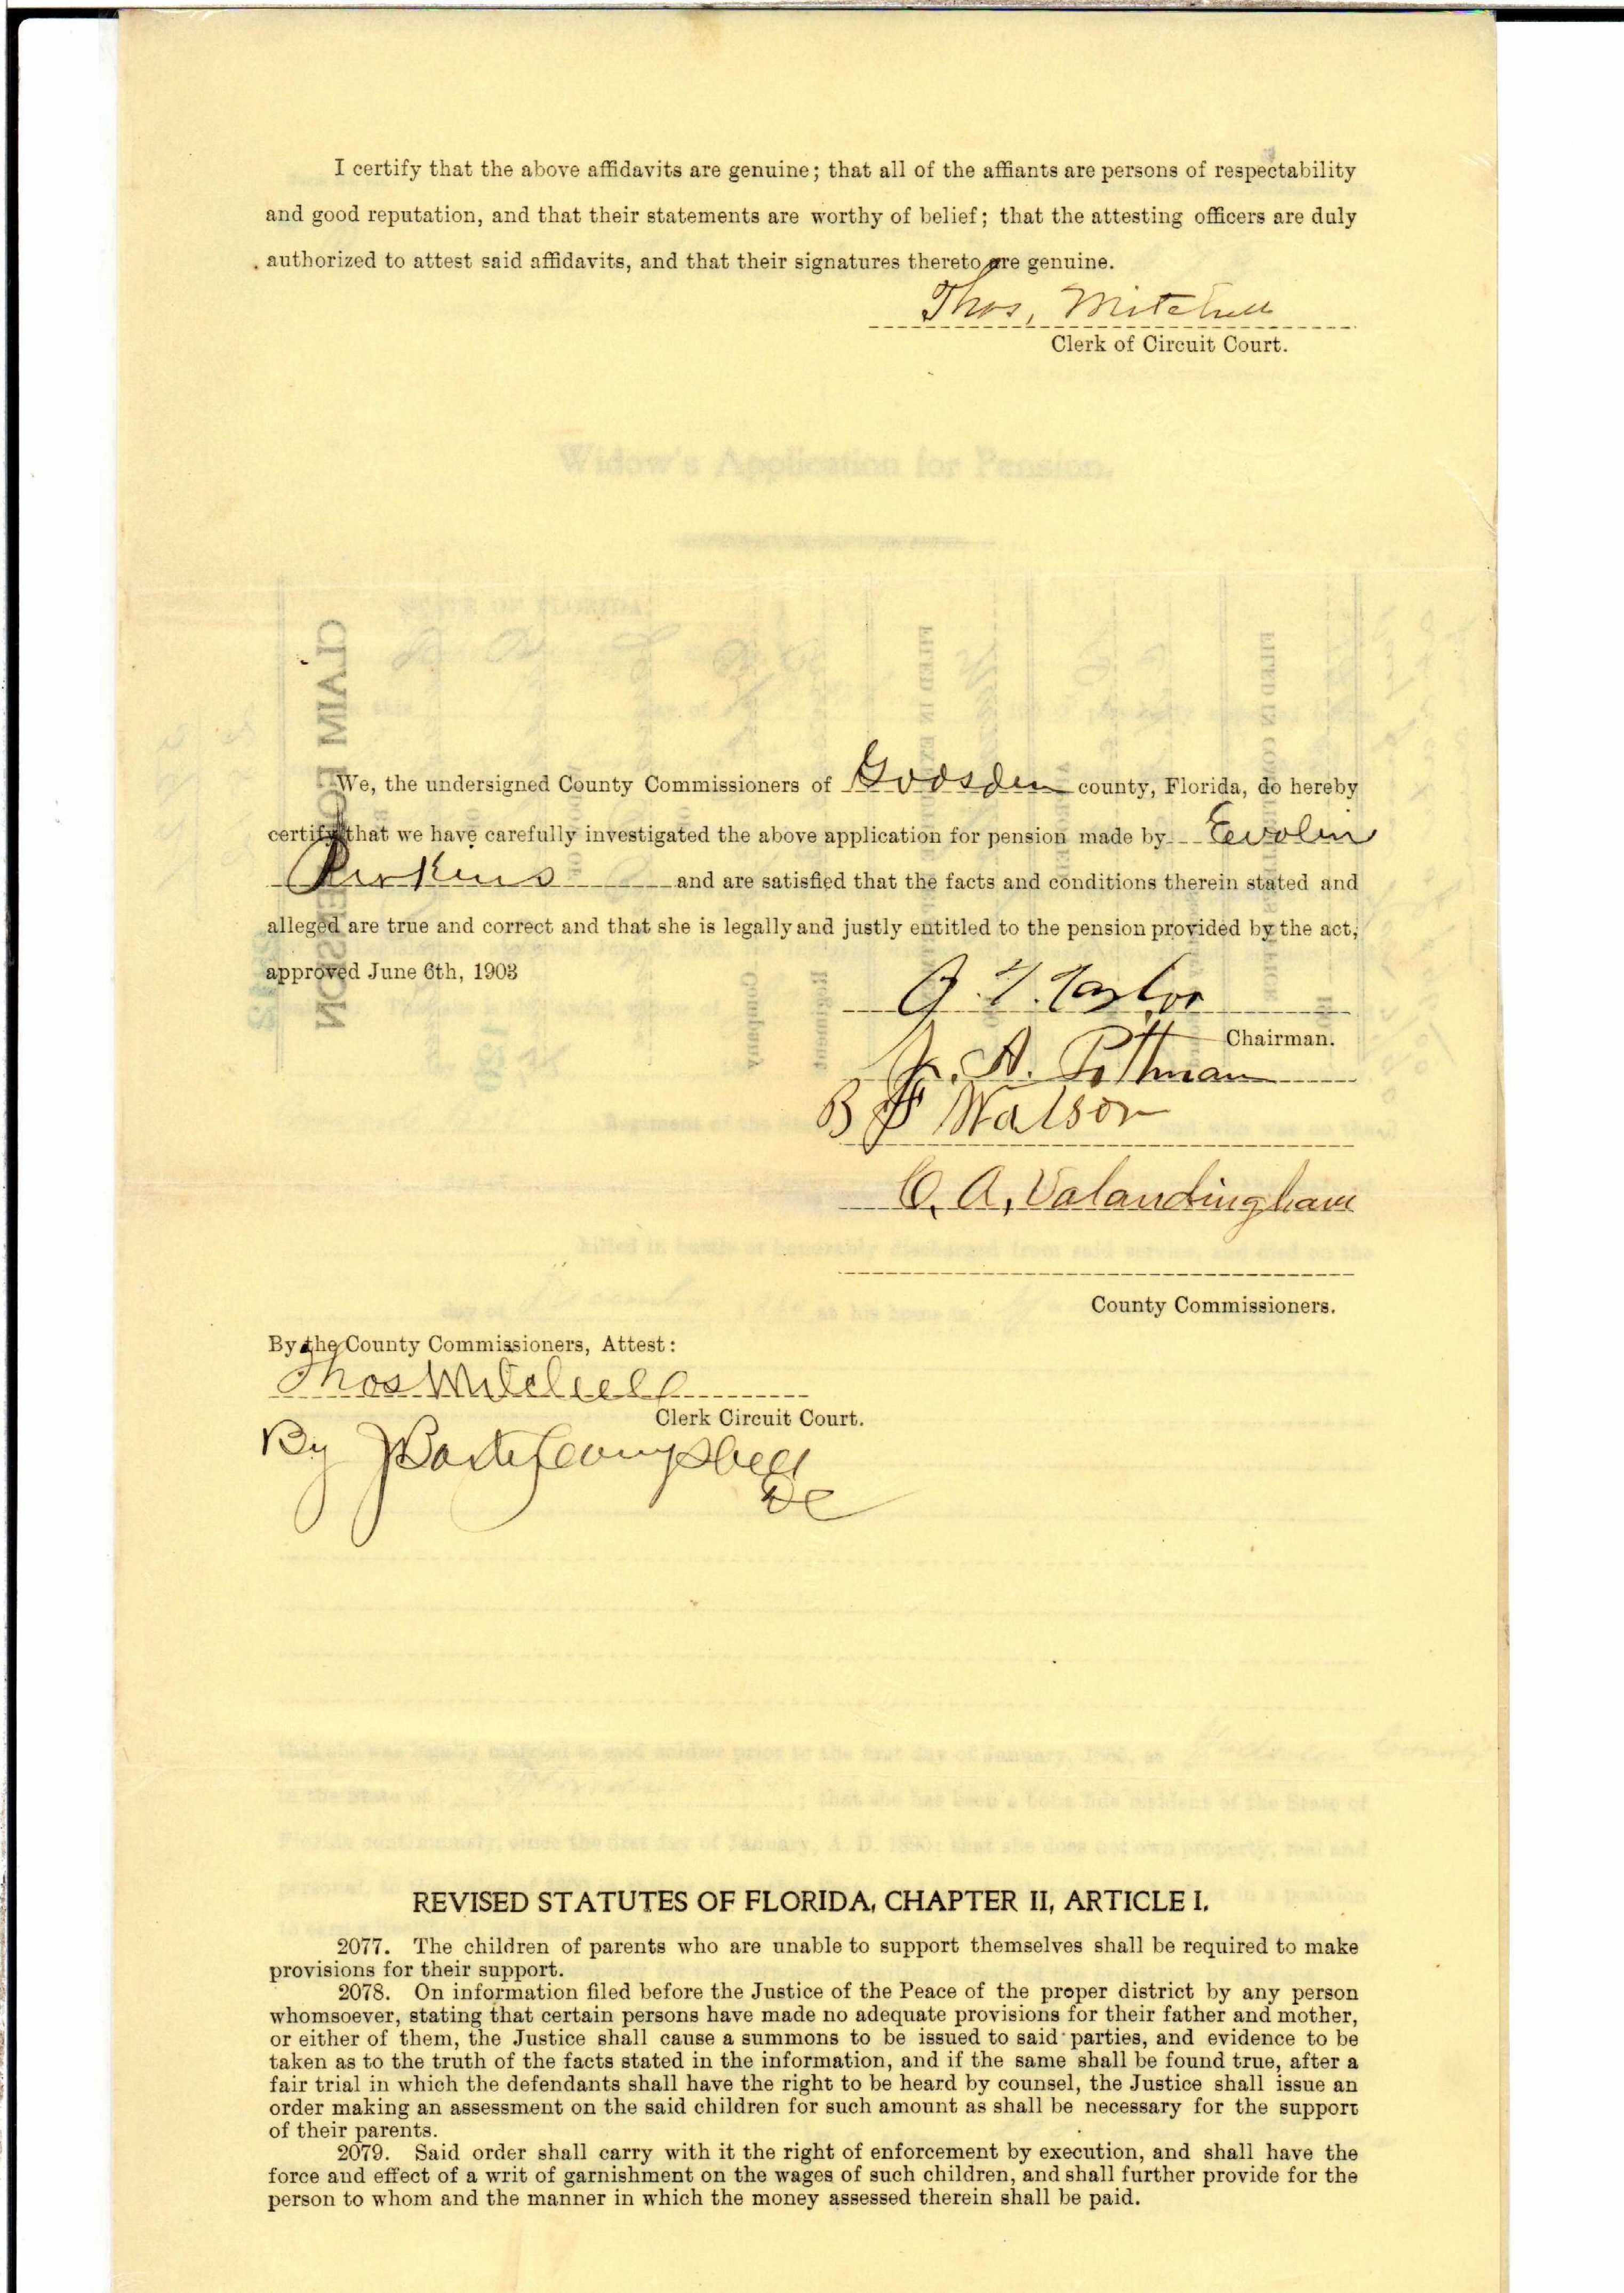 I certify that the above affidavits are genuine; that all of the affiants are persons of respectability
and good reputation, and that their statements are worthy of belief; that the attesting officers are duly
authorized to attest said affidavits, and that their signatures thereto are genuine.
Thos, Mitchell
Clerk of Circuit Court.
Widow's Application for Pension.
STATE OF FLORIDA
CLAIM FOR PENSION
We, the undersigned County Commissioners of Gadsden county, Florida, do hereby
certify that we have carefully investigated the above application for pension made by Evolin
Perkins and are satisfied that the facts and conditions therein stated and
alleged are true and correct and that she is legally and justly entitled to the pension provided by the act,
approved June 6th, 1903
Taylor
Chairman.
A. Pittman
B F Watson
C. A, Valandingham
County Commissioners.
By the County Commissioners, Attest:
Thos Mitchell
Clerk Circuit Court.
By Campbell
DC
that she was legally married to said soldier prior to the first day of January,
in the State of ; that she has been a bona fide resident of the State of
Florida continuously, since the first day of January, A. D. that she does not own property, real and
REVISED STATUTES OF FLORIDA, CHAPTER II, ARTICLE I.
2077. The children of parents who are unable to support themselves shall be required to make
provisions for their support.
2078. On information filed before the Justice of the Peace of the proper district by any person
whomsoever, stating that certain persons have made no adequate provisions for their father and mother,
or either of them, the Justice shall cause a summons to be issued to said parties, and evidence to be
taken as to the truth of the facts stated in the information, and if the same shall be found true, after a
fair trial in which the defendants shall have the right to be heard by counsel, the Justice shall issue an
order making an assessment on the said children for such amount as shall be necessary for the support
of their parents.
2079. Said order shall carry with it the right of enforcement by execution, and shall have the
force and effect of a writ of garnishment on the wages of such children, and shall further provide for the
person to whom and the manner in which the money assessed therein shall be paid.